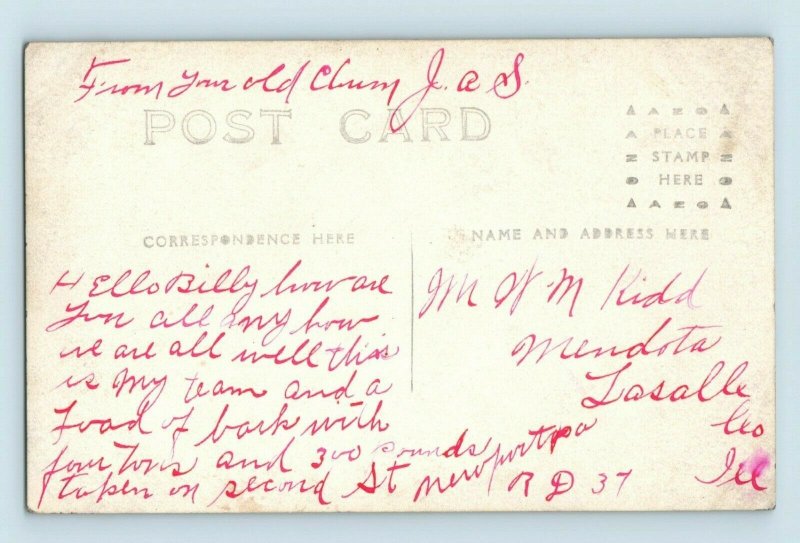 From your old Chum J. a S.
POST CARD
AZO
PLACE
STAMP
HERE
AZO
CORRESPONDENCE HERE
NAME AND ADDRESS HERE
HEllo Billy how are
you all any how
we are all well this
is My team and a
Load of bark with
four tons and 300 pounds
taken on second St Newport pa
R D 37
Mr W M Kidd
Mendota
Lasalle
Co
Ill